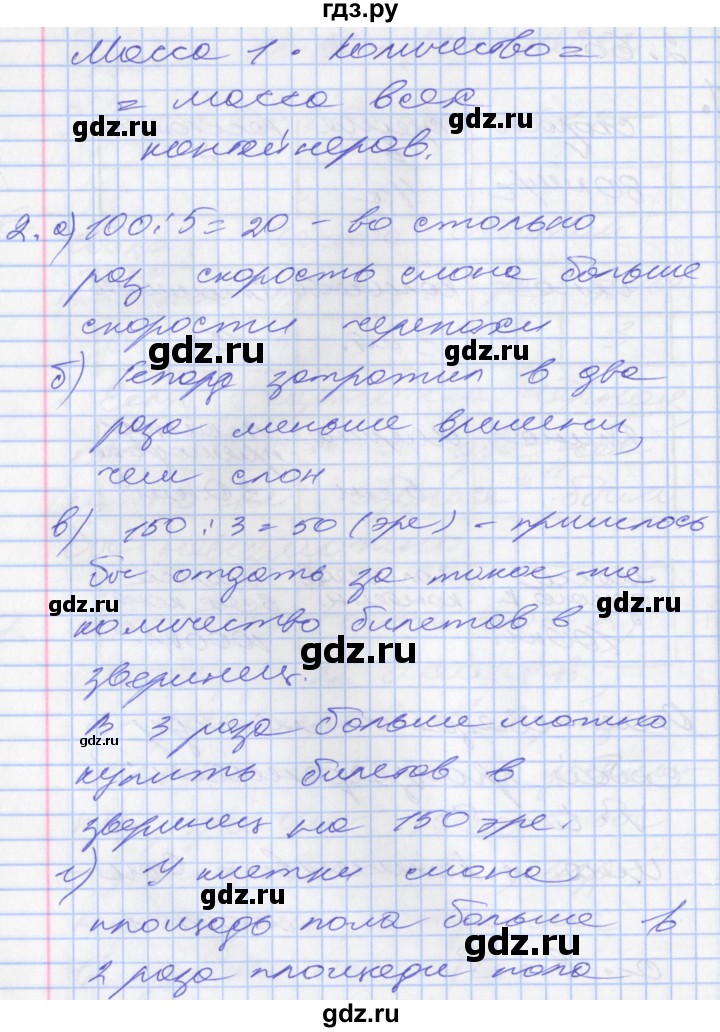 гдз.ру
Масса 1 · количество =
= масса всех
контейнеров.
2. а) 100 : 5 = 20 – во столько
раз скорость слона больше
скорости черепахи
б) Гепард затратил в два
раза меньше времени,
чем слон
в) 150 : 3 = 50 (эре) – пришлось
бы отдать за такое же
количество билетов в
зверинец.
В 3 раза больше можно
купить билетов в
зверинец на 150 эре.
г) У клетки слона
площадь пола больше в
2 раза площади пола
gdz.ru
gdz.ru
gdz.ru
gdz.ru
gdz.ru
gdz.ru
gdz.ru
gdz.ru
gdz.ru
gdz.ru
gdz.ru
gdz.ru
gdz.ru
гдз.ру